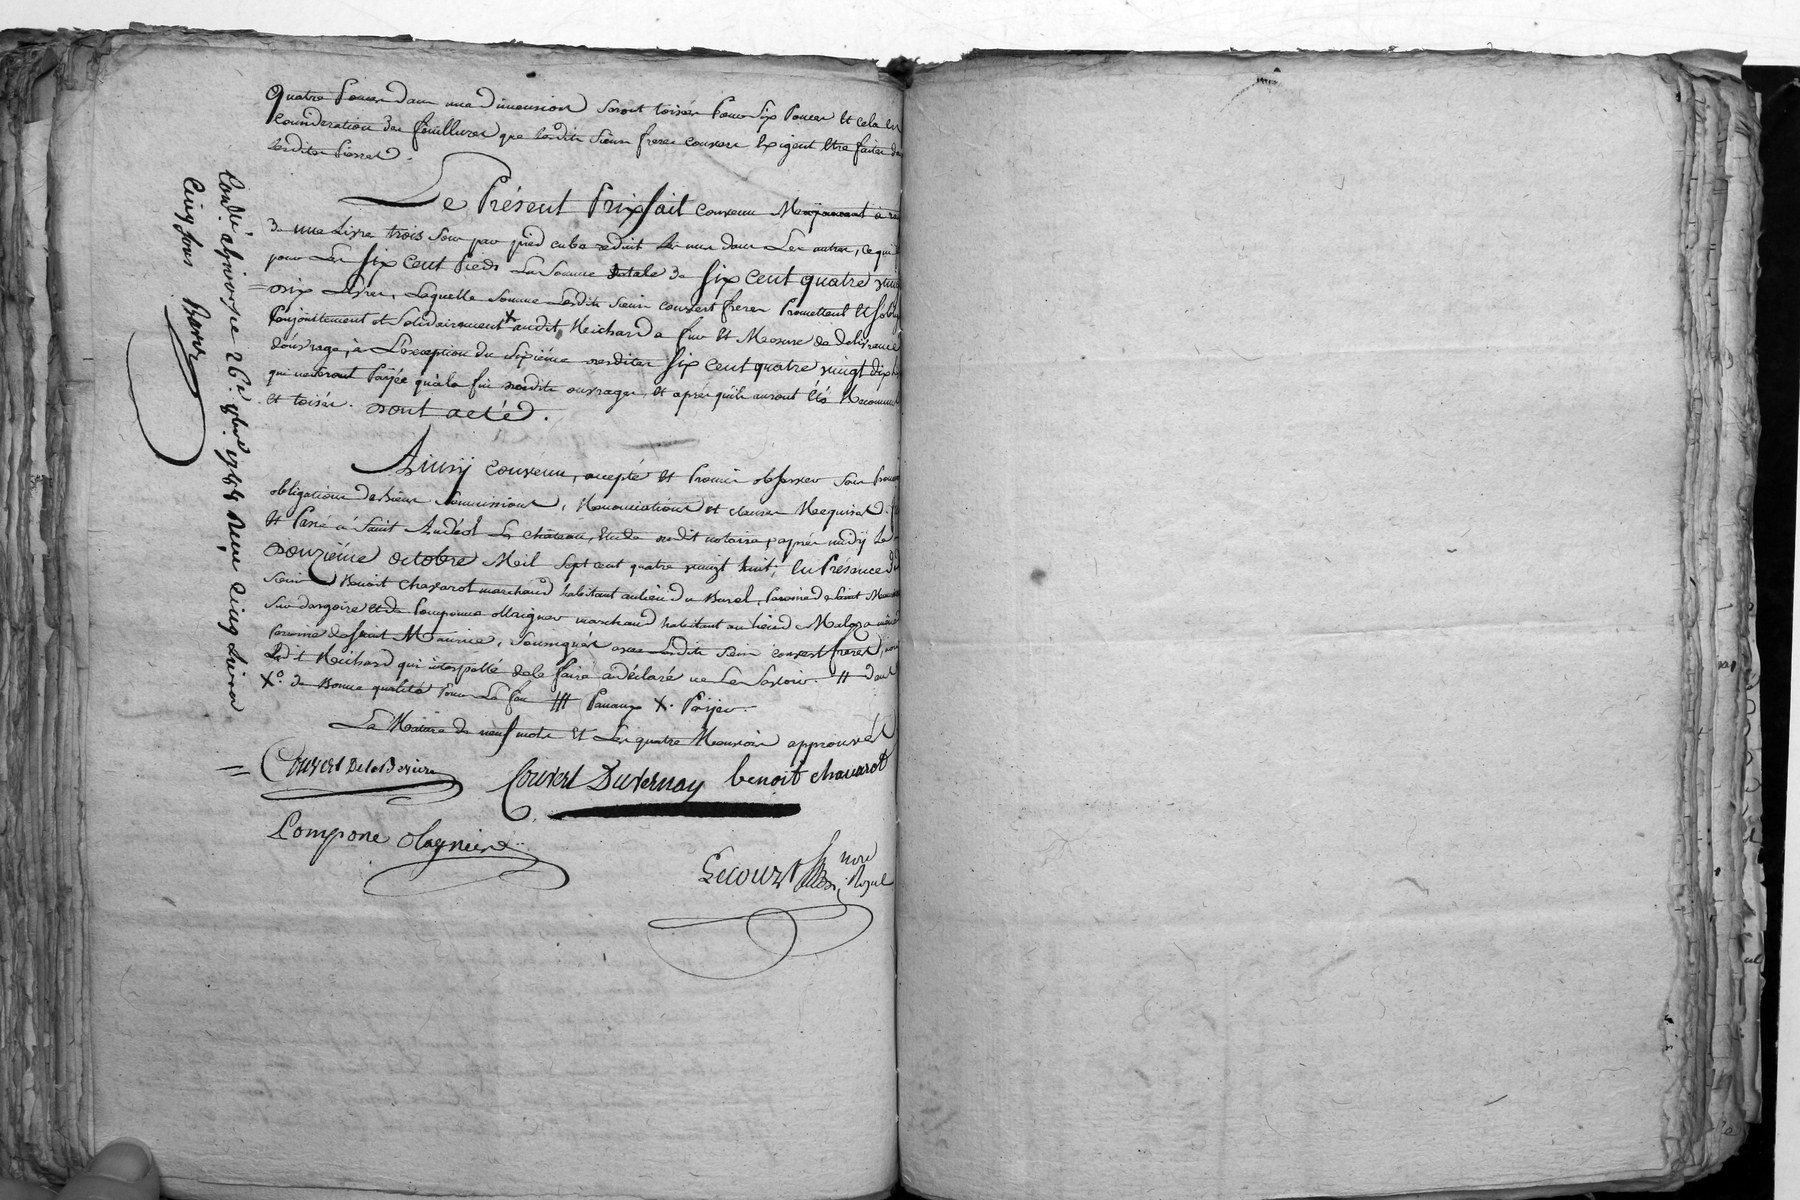 Quatre Pouces dans une dimension seront toisés Pour six Pouces Et cela en
Consideration des feuillures que lesdits sieurs freres couvert Exigent Etre faites
lesdites Pierres.
Le Présent Prixfait convenu Moyennant
de une Livre trois sous par pied cube reduit les uns dans Les autres, ce qui
pour Les six cent Pieds La somme totale de six cent quatre vingt
dix Livres, Laquelle somme Lesdits sieurs couvert freres Promettent Et
Conjointement et solidairement X audit Reichard a fur Et Mesure de delivrance
d'ouvrage, à L'exception du sixieme desdites six cent quatre vingt dix
qui ne seront Payée qu'a la fin desdits ouvrages, Et après qu'ils auront Etés Reconnus
Et toisés. dont acté.
Ainsy convenu, accepté Et Promis observer sous
obligations de Biens soumissions, Renonciations et clauses Requises.
Et Passé à Saint Andéol Le château, Etude dudit notaire, après midy Le
douzieme octobre Mil sept cent quatre vingt huit, En Présence
sieur Benoit Chavarot marchand habitant au lieu du Burel, Paroisse de Saint
sur dargoire et de Pompone Olagnier marchand habitant au lieu de
Paroisse de Saint Maurice, soussignés avec Lesdits sieurs couvert freres, non
Ledit Reichard qui interpellé de le faire a déclaré ne Le savoir. # dans
X° de Bonne qualité Pour La # X. Payer.
La Rature de neuf mots Et Les quatre Renvois approuvés
= Couvert Couvert Duvernay benoit chavarot
Pompone Olagnier
Lecourt nore Royal
Con.lé à Givors le 26. 8bre 1788 Reçu cinq Livres
Cinq sous